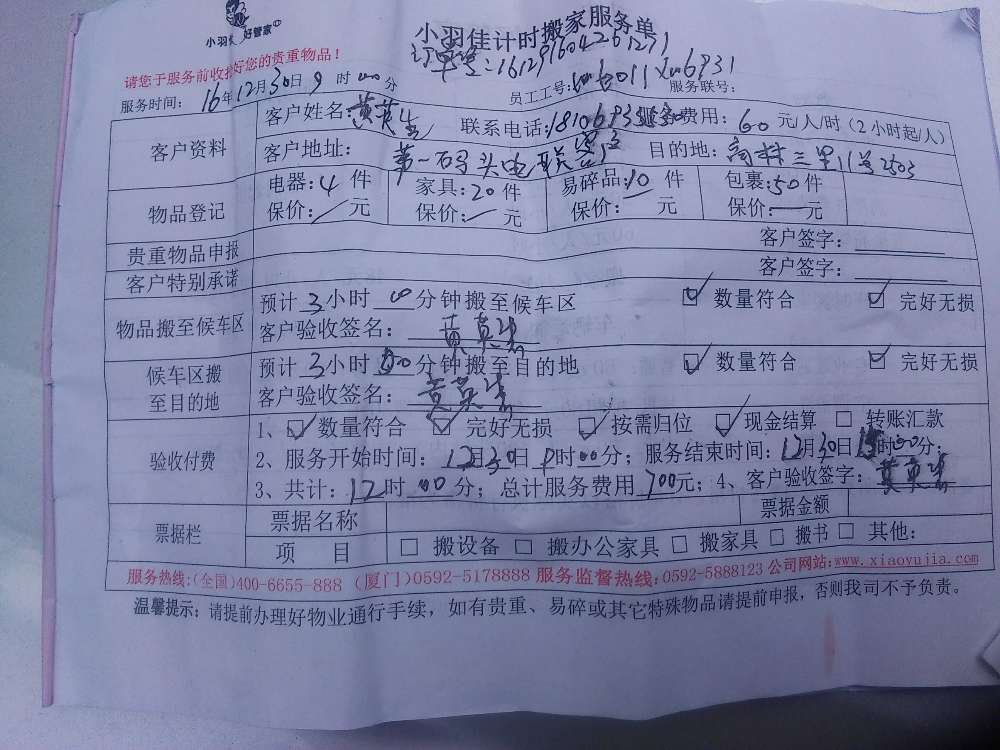 小羽佳 好管家
小羽佳计时搬家服务单
请您于服务前收拾好您的贵重物品！
订单号：161291604261271
服务时间：16年12月30日9时00分 员工工号： 服务联号：
客户资料 客户姓名：黄英生 联系电话： 服务费用：60元/人/时（2小时起/人）
客户地址：第一码头电联 目的地：高林三里11号2503
物品登记 电器：4件 家具：20件 易碎品：10件 包裹：50件
保价：/元 保价：/元 保价： 元 保价：/元
贵重物品申报 客户签字：
客户特别承诺 客户签字：
物品搬至候车区 预计3小时00分钟搬至候车区 ☑ 数量符合 ☑ 完好无损
客户验收签名：
候车区搬至目的地 预计3小时00分钟搬至目的地 ☑ 数量符合 ☑ 完好无损
客户验收签名：
验收付费 1、☑ 数量符合 ☑ 完好无损 ☑ 按需归位 ☑ 现金结算 □ 转账汇款
2、服务开始时间：12月30日9时00分；服务结束时间：12月30日15时00分；
3、共计：12时00分；总计服务费用700元；4、客户验收签字：
票据栏 票据名称 票据金额
项 目 □ 搬设备 □ 搬办公家具 □ 搬家具 □ 搬书 □ 其他：
服务热线：(全国)400-6655-888 (厦门)0592-5178888 服务监督热线：0592-5888123 公司网站：www.xiaoyujia.com
温馨提示：请提前办理好物业通行手续，如有贵重、易碎或其它特殊物品请提前申报，否则我司不予负责。